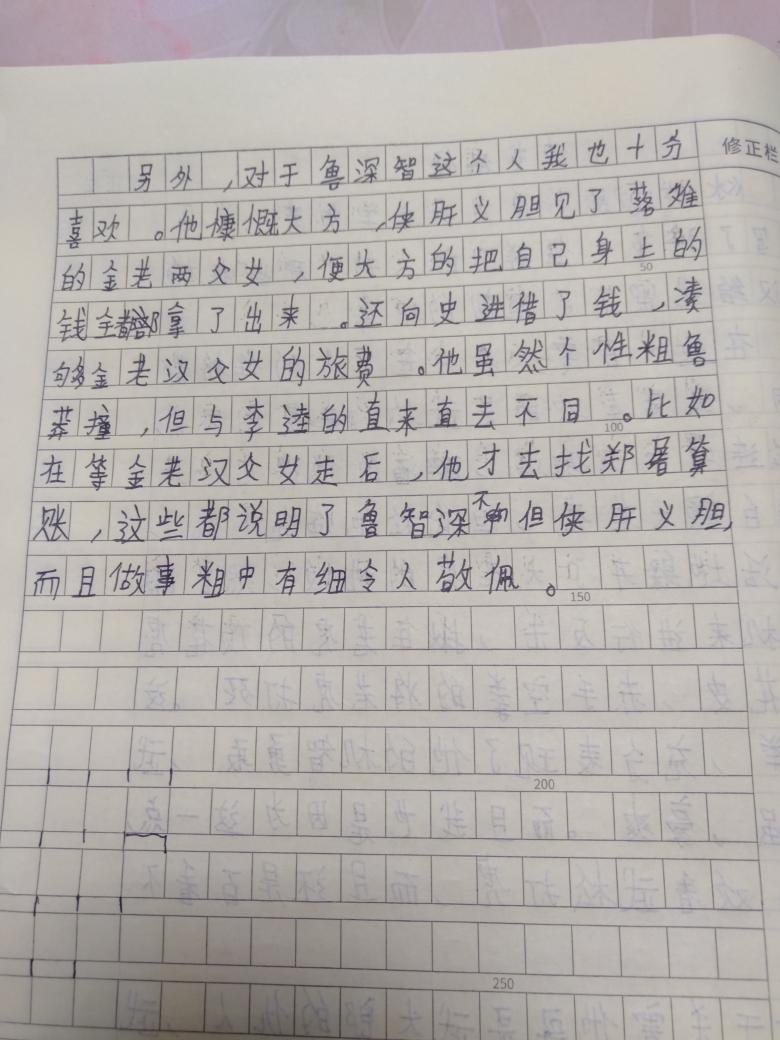 修正栏
另外，对于鲁深智这个人我也十分
喜欢。他慷慨大方，侠肝义胆见了落难
的金老两父女，便大方的把自己身上的
50
钱全都拿了出来。还向史进借了钱，凑
够金老汉父女的旅费。他虽然个性粗鲁
莽撞，但与李逵的直来直去不同。比如
100
在等金老汉父女走后，他才去找郑屠算
账，这些都说明了鲁智深不但侠肝义胆，
而且做事粗中有细令人敬佩。
150
200
250